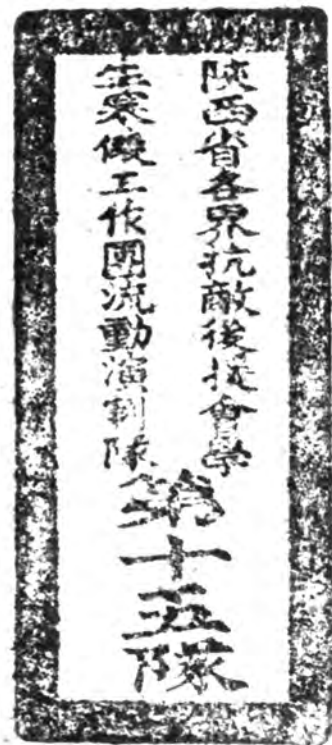 陝西省各界抗敵後援會學
生寒假工作團流動演劇隊
第十五隊